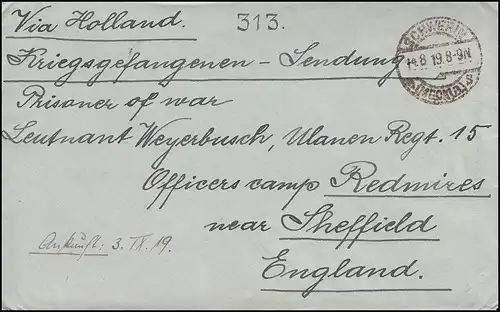 Via Holland.
313.
SCHWERIN
14.8 19.8-9N
(MECKLB)
Kriegsgefangenen - Sendung
Prisoner of war
Leutnant Weyerbusch, Ulanen Regt. 15
Officers camp Redmires
near Sheffield
England.
Ankunft: 3. IX. 19.